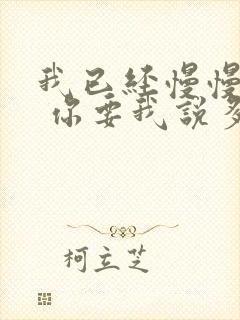 我已经慢慢
你要我说多
柯立芝